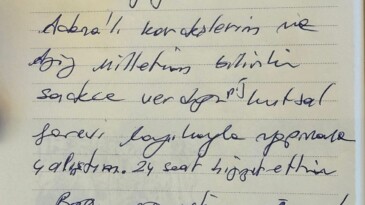 Adana'lı kardeşlerim ve
Aziz milletim bilirki
sadece verdiğiniz kutsal
görevi layıkıyla yapmaya
çalıştım. 24 saat hizmet ettim